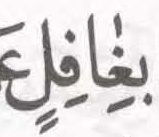 بِغَافِلٍ